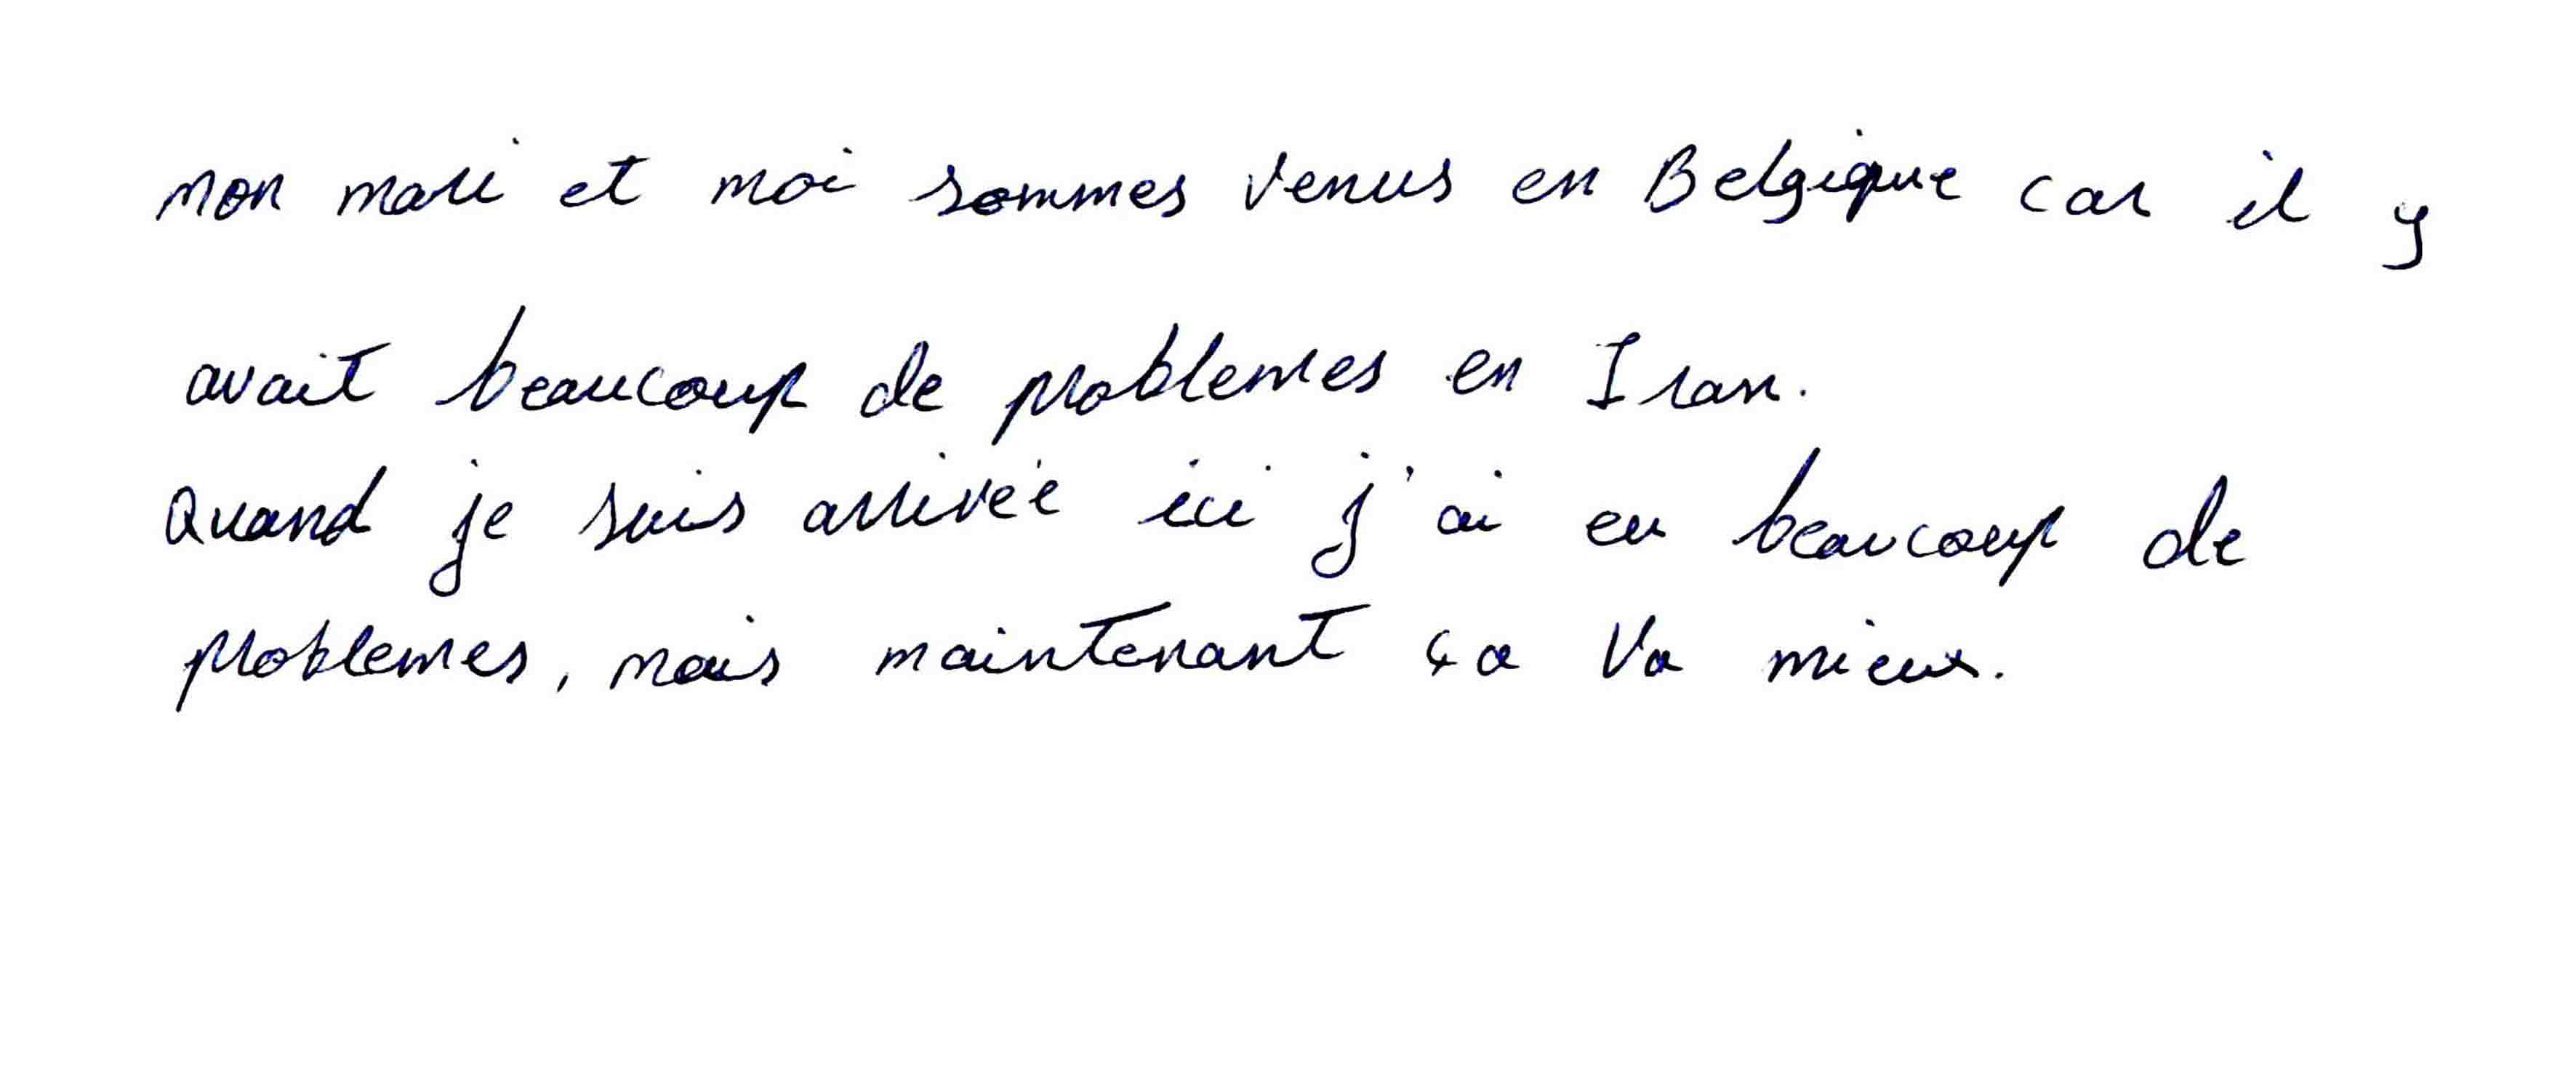 mon mari et moi sommes venus en Belgique car il y
avait beaucoup de problemes en Iran.
Quand je suis arrivée ici j'ai eu beaucoup de
problemes, mais maintenant ça va mieux.